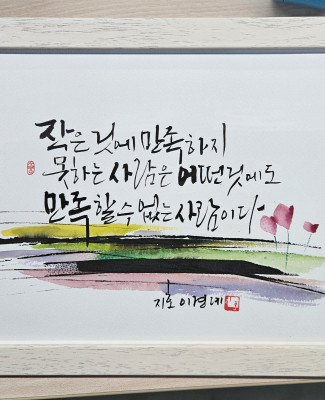 작은 것에 만족하지
못하는 사람은 어떤것에도
만족 할 수 없는 사람이다
지호 이경례